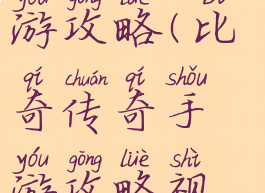 游攻略(比
qí chuán qí shǒu
奇传奇手
yóu gōng lüè shì
游攻略视